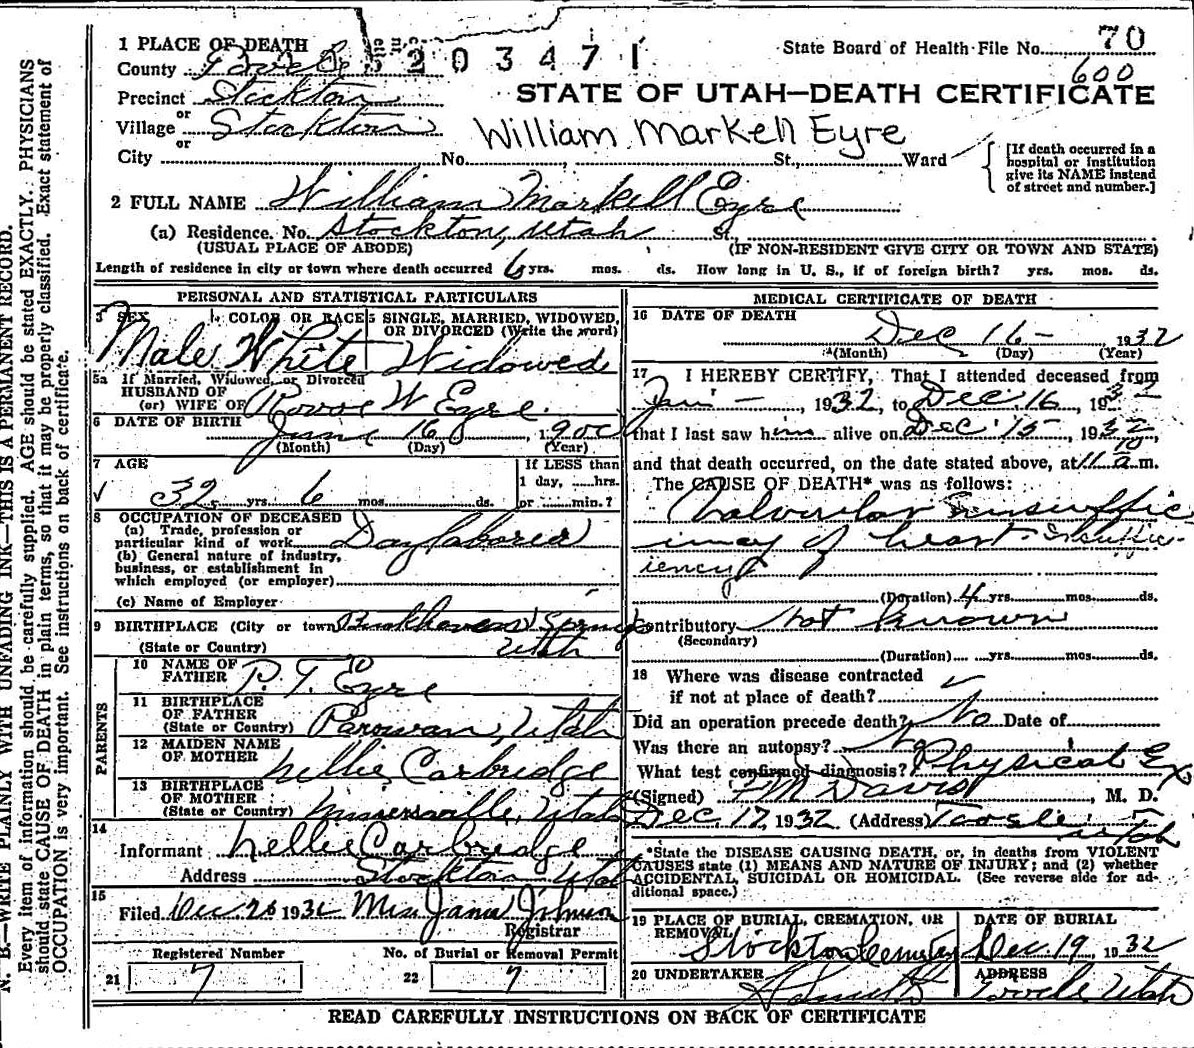 1 PLACE OF DEATH
County Tooele
203471
State Board of Health File No. 70
600
Precinct Stockton
or
Village Stockton
or
City No. , St., Ward
STATE OF UTAH—DEATH CERTIFICATE
William Markell Eyre
[If death occurred in a
hospital or institution
give its NAME instead
of street and number.]
2 FULL NAME William Markell Eyre
(a) Residence. No. Stockton, Utah St.
(USUAL PLACE OF ABODE) (IF NON-RESIDENT GIVE CITY OR TOWN AND STATE)
Length of residence in city or town where death occurred 6 yrs. mos. ds. How long in U. S., if of foreign birth? yrs. mos. ds.
PERSONAL AND STATISTICAL PARTICULARS
3 SEX 4 COLOR OR RACE 5 SINGLE, MARRIED, WIDOWED,
OR DIVORCED (Write the word)
Male White Widowed
5a If Married, Widowed, or Divorced
HUSBAND OF
(or) WIFE OF W Eyre.
6 DATE OF BIRTH June 16, 1900
(Month) (Day) (Year)
7 AGE
32 yrs. 6 mos. ds.
If LESS than
1 day, hrs.
or min.?
8 OCCUPATION OF DECEASED
(a) Trade, profession or
particular kind of work Day laborer
(b) General nature of industry,
business, or establishment in
which employed (or employer)
(c) Name of Employer
9 BIRTHPLACE (City or town)
(State or Country) Utah
PARENTS
10 NAME OF
FATHER P. T. Eyre
11 BIRTHPLACE
OF FATHER
(State or Country) Parowan, Utah
12 MAIDEN NAME
OF MOTHER Nellie Carbridge
13 BIRTHPLACE
OF MOTHER
(State or Country) Minersville, Utah
14
Informant Nellie Carbridge
Address Stockton Utah
15
Filed Dec 26 1932 Mrs. Johnson
Registrar
Registered Number No. of Burial or Removal Permit
21 7 22 7
MEDICAL CERTIFICATE OF DEATH
16 DATE OF DEATH
Dec 16 - 1932
(Month) (Day) (Year)
17 I HEREBY CERTIFY, That I attended deceased from
Jan - , 1932, to Dec. 16, 1932
that I last saw him alive on Dec. 15, 1932,
and that death occurred, on the date stated above, at 11 a.m.
The CAUSE OF DEATH* was as follows:
Valvular Insuffic
iency of heart Insuffic-
iency
(Duration) 4 yrs. mos. ds.
Contributory Not Known
(Secondary)
(Duration) yrs. mos. ds.
18 Where was disease contracted
if not at place of death?
Did an operation precede death? No Date of
Was there an autopsy? No
What test confirmed diagnosis? Physical Ex
(Signed) F M Davis, M. D.
Dec. 17, 1932 (Address) Tooele
Utah
*State the DISEASE CAUSING DEATH, or, in deaths from VIOLENT
CAUSES state (1) MEANS AND NATURE OF INJURY; and (2) whether
ACCIDENTAL, SUICIDAL OR HOMICIDAL. (See reverse side for ad-
ditional space.)
19 PLACE OF BURIAL, CREMATION, OR
REMOVAL
Stockton Cemetery
DATE OF BURIAL
Dec. 19, 1932
20 UNDERTAKER
ADDRESS
Tooele Utah
READ CAREFULLY INSTRUCTIONS ON BACK OF CERTIFICATE
N. B.—WRITE PLAINLY WITH UNFADING INK—THIS IS A PERMANENT RECORD.
Every item of information should be carefully supplied. AGE should be stated EXACTLY. PHYSICIANS
should state CAUSE OF DEATH in plain terms, so that it may be properly classified. Exact statement of
OCCUPATION is very important. See instructions on back of certificate.